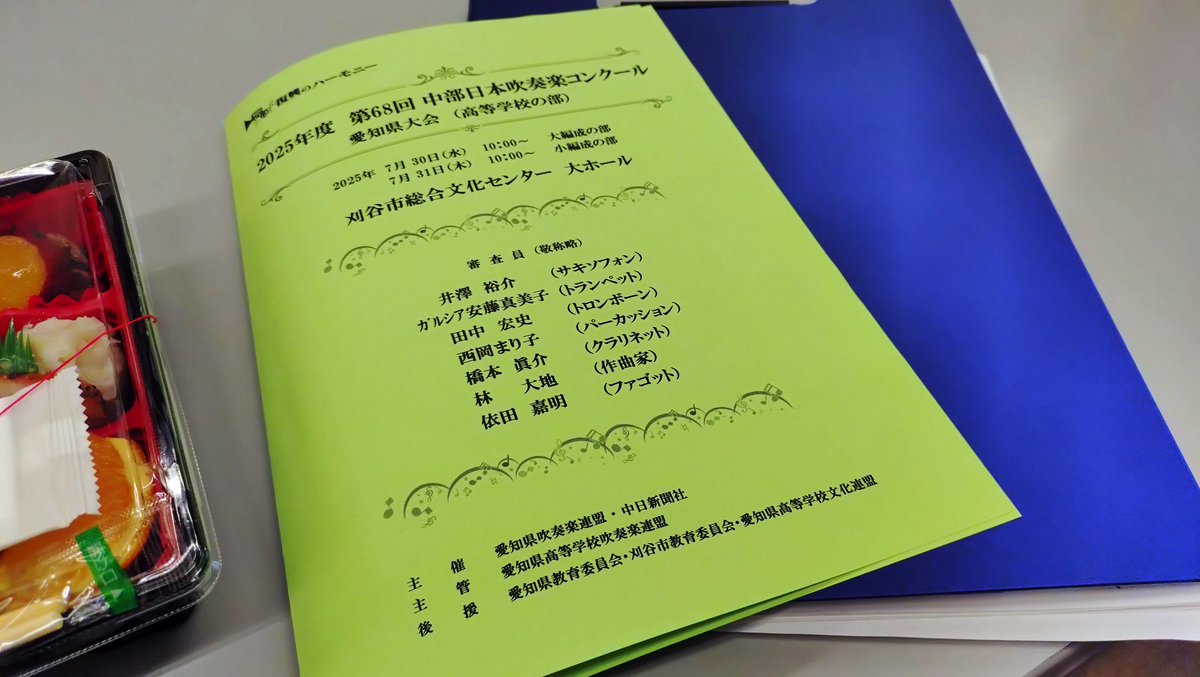 復興のハーモニー
2025年度 第68回 中部日本吹奏楽コンクール
愛知県大会 (高等学校の部)
2025年 7月30日(水) 10:00～ 大編成の部
7月31日(木) 10:00～ 小編成の部
刈谷市総合文化センター 大ホール
審査員 (敬称略)
井澤 裕介 (サキソフォン)
ガルシア安藤真美子 (トランペット)
田中 宏史 (トロンボーン)
西岡まり子 (パーカッション)
橋本 眞介 (クラリネット)
林 大地 (作曲家)
依田 嘉明 (ファゴット)
主催 愛知県吹奏楽連盟・中日新聞社
主管 愛知県高等学校吹奏楽連盟
後援 愛知県教育委員会・刈谷市教育委員会・愛知県高等学校文化連盟